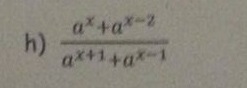 h) \frac{a^{x}+a^{x-2}}{a^{x+1}+a^{x-1}}